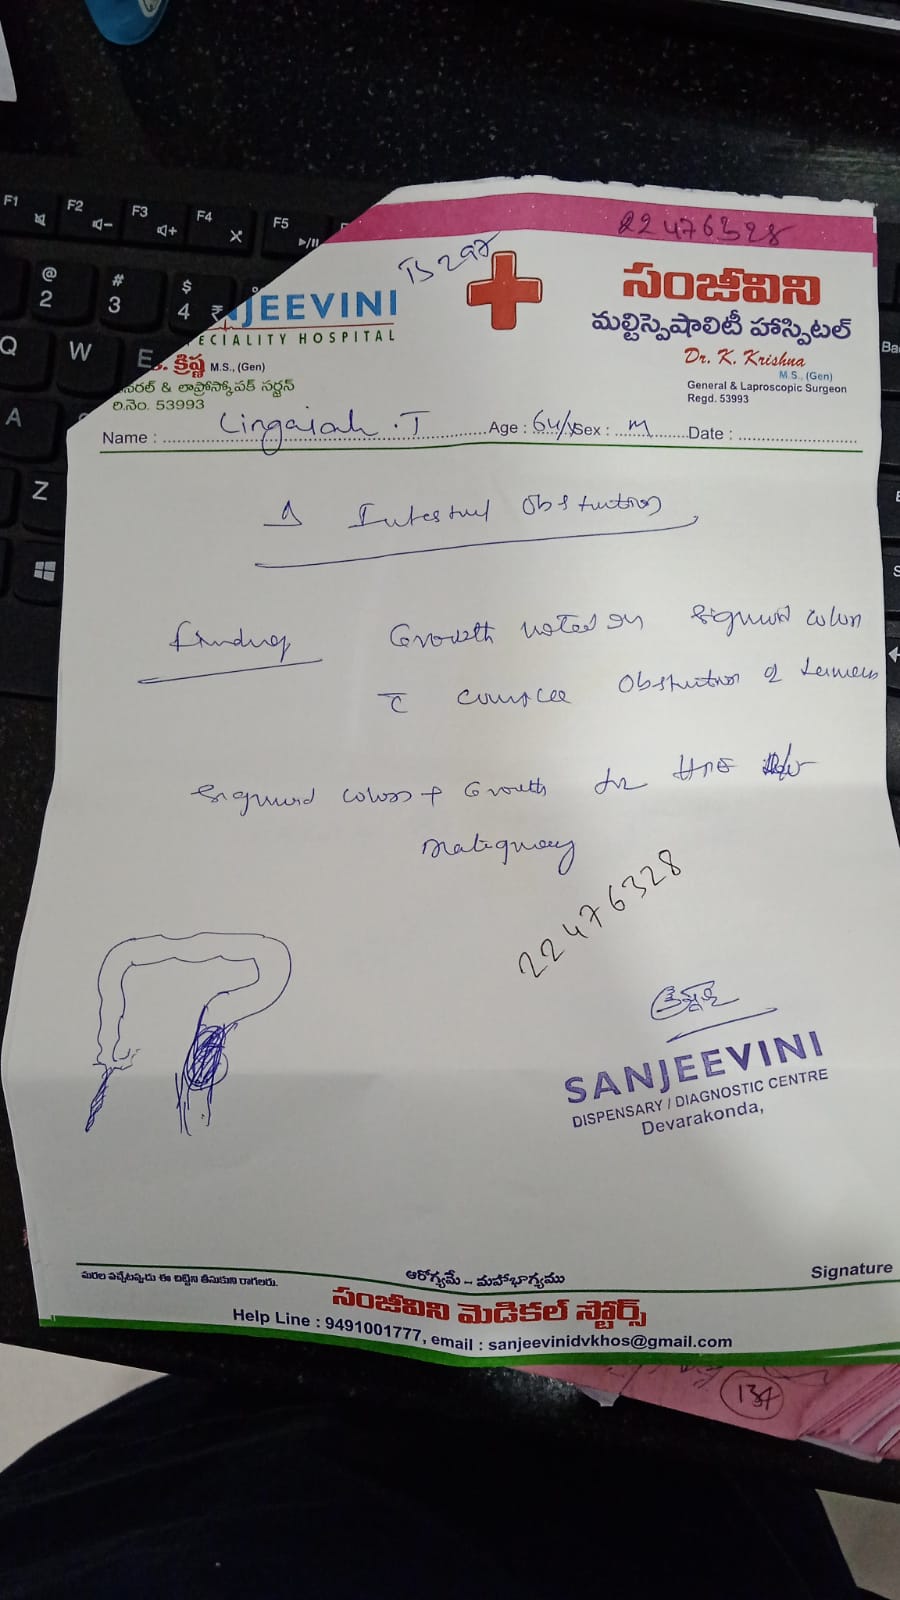 22476328
TS 297
JEEVINI
ECIALITY HOSPITAL
క్రిష్ణ M.S., (Gen)
నరల్ & లాప్రోస్కోపిక్ సర్జన్
రి.నెం. 53993
సంజీవిని
మల్టిస్పెషాలిటీ హాస్పిటల్
Dr. K. Krishna
M.S., (Gen)
General & Laproscopic Surgeon
Regd. 53993
Name : Lingaiah .T Age : 64/Y Sex : M Date :
Δ Intestinal Obstruction
Findings Growth noted in sigmoid colon
c̄ complete Obstruction of lumen
sigmoid colon + Growth for HPE
malignancy
22476328
SANJEEVINI
DISPENSARY / DIAGNOSTIC CENTRE
Devarakonda,
Signature
మరల వచ్చేటప్పుడు ఈ చిట్టిని తీసుకుని రాగలరు.
ఆరోగ్యమే – మహాభాగ్యము
సంజీవిని మెడికల్ స్టోర్స్
Help Line : 9491001777, email : sanjeevinidvkhos@gmail.com
137
F1 F2 F3 F4 F5
@ # $
2 3 4 ₹
Q W E
A
Z